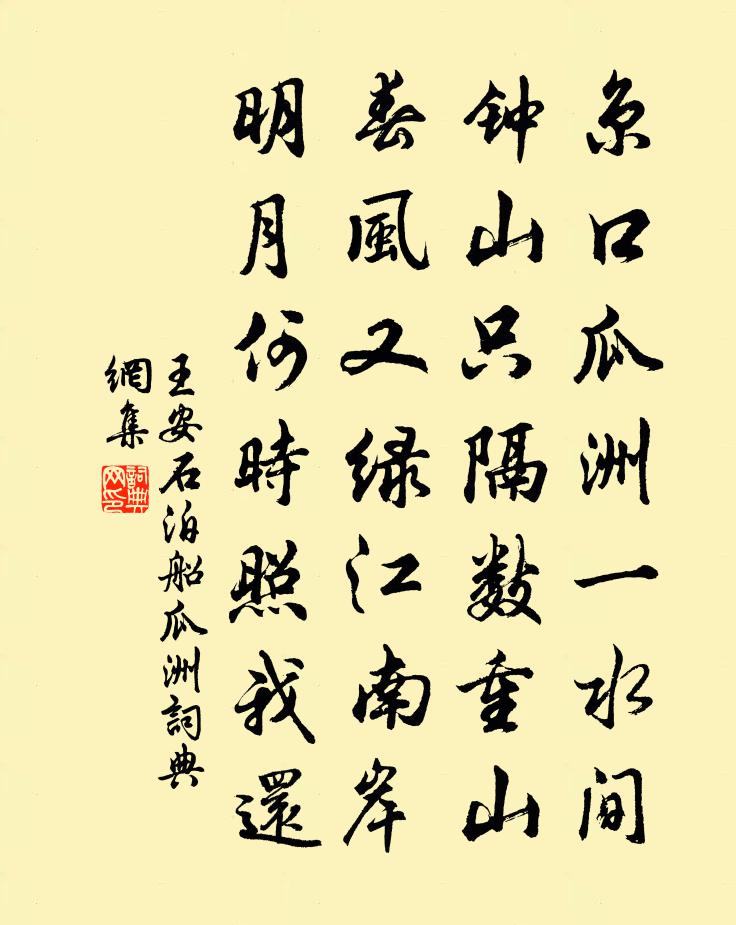 京口瓜洲一水间
钟山只隔数重山
春風又绿江南岸
明月何時照我還
王安石泊船瓜洲詞典
網集
詞典
网印